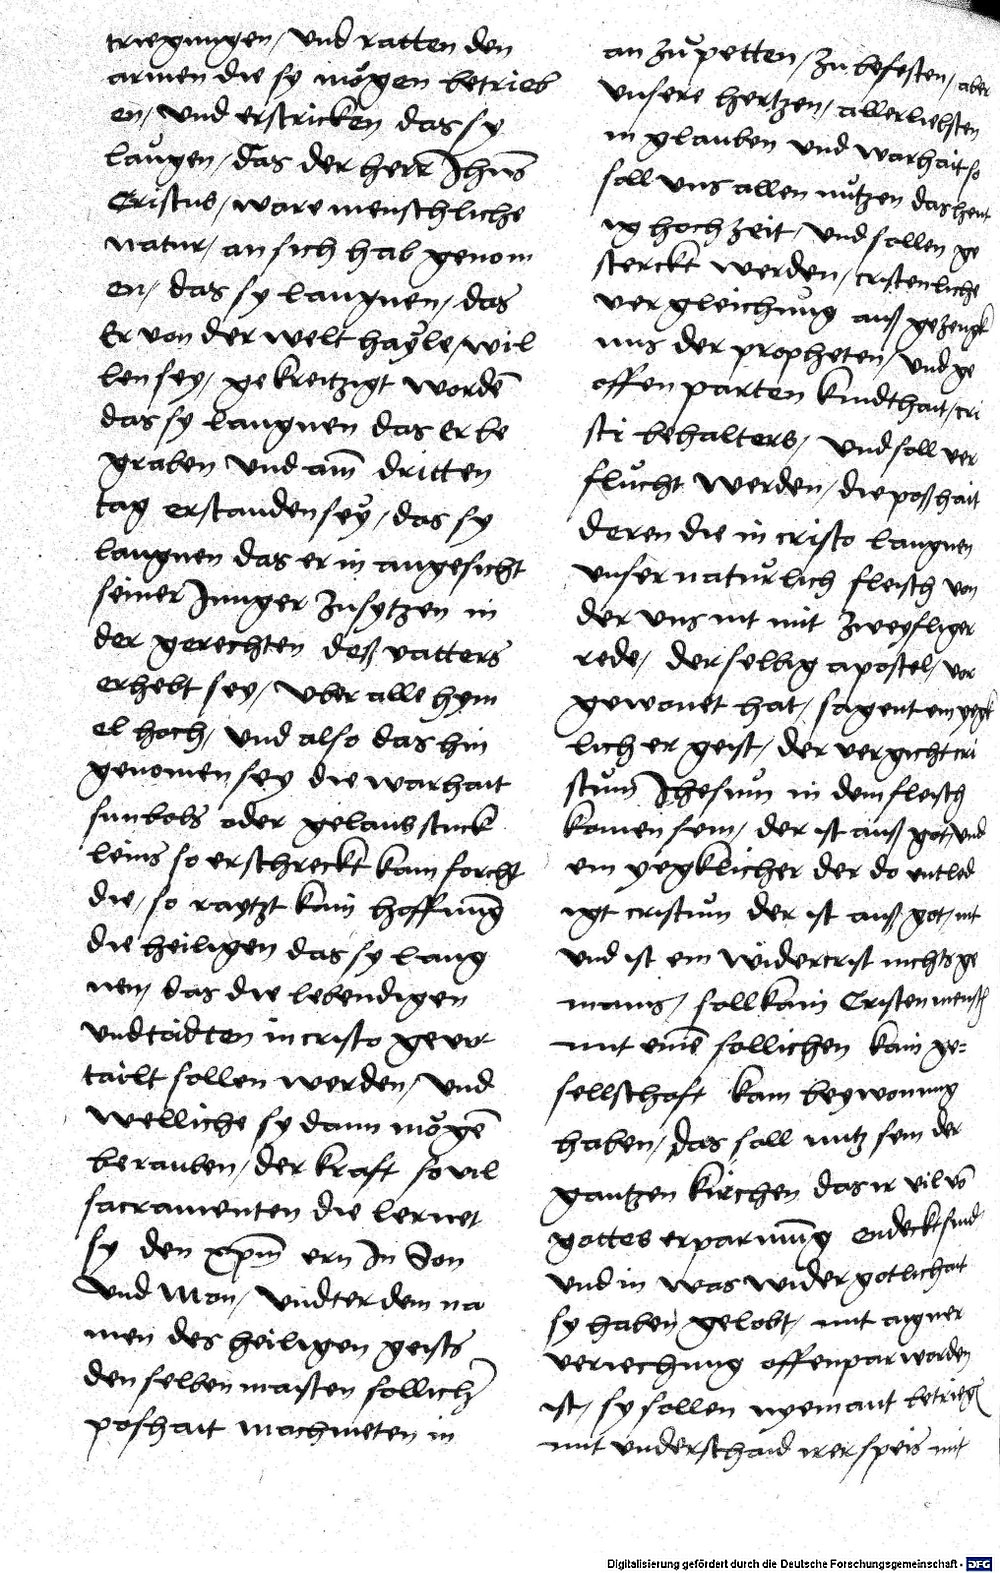 triegungen / und ratten den
armen die sy mögen betrieb
en / und erstricken das sy
laügen / das der herr Jhus
Cristus / ware menschliche
natur / an sich hab genom
en / das sy laugnen / das
Er von der welt hayle / wil
len sey / gekreitzigt worden̄
das sy laugnen das er be
graben und am̄ dritten
tag erstanden seÿ / das sy
laugnen das er in angesicht
seiner Junger zusytzen in
der gerechten deß vatters
erhebt sey / vber alle hym
el hoch / und also das hin
genomen sey die warhait
sunbols oder gelaub stuck
leins so erschreckt kain forcht
die / so raytzt kain hoffnung
die heiligen das sy laug
nen / das die lebendigen
und todten in cristo gevor
tailt sollen werden / und
welliche sy dann mögē
berauben / der kraft sovil
sacramenten die lernet
sy den xpm̄ ern In Son
und Mon / Undter dem na
men des heiligen geists
den selben maisten sollich
poshait machmeten in
an zü petten / zu befesten / aber
unsere hertzen / allerliebsten
in glauben und warhait so
soll uns allen nützen das heut
ig hochzeit / und sollen ge
sterckt werden / cristenliche
vergleichüng auß gezeugk
nus der propheten / und ge
offenparten kindthait / cri
sti behalters / und soll ver
flücht werden / die poßhait
deren die in cristo laugnen
unser natürlich fleisch von
der uns nit mit zweyfliger
rede / derselbig apostel / vor
gewonet hat / sagent ein yegk
licher geist / der vergicht cri
stum̄ Jhesum in dem fleisch
komen sein / der ist auß got / und
ein yegklicher der do entled
igt cristüm der ist auß got / nit
und ist ein widercrist nichts ge
mains / soll kain Cristen mensch
mit einē sollichen kain ge=
sellschaft kain beywonung
haben / das soll nutz sein der
gantzen kirchen das ir vil vō
gottes erparmūg endeckt sind
und in was wider gotlichait
sy haben gelobt / mit aigner
veriechung offenpar worden
ist / sy sollen nyemant betrieg
mit underschaid irer speis mit
Digitalisierung gefördert durch die Deutsche Forschungsgemeinschaft - DFG